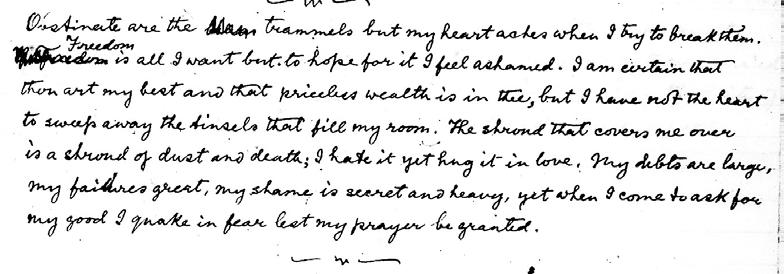 Obstinate are the trammels but my heart aches when I try to break them.
Freedom is all I want but to hope for it I feel ashamed. I am certain that
thou art my best and that priceless wealth is in thee, but I have not the heart
to sweep away the tinsels that fill my room. The shroud that covers me over
is a shroud of dust and death; I hate it yet hug it in love. My debts are large,
my failures great, my shame is secret and heavy, yet when I come to ask for
my good I quake in fear lest my prayer be granted.